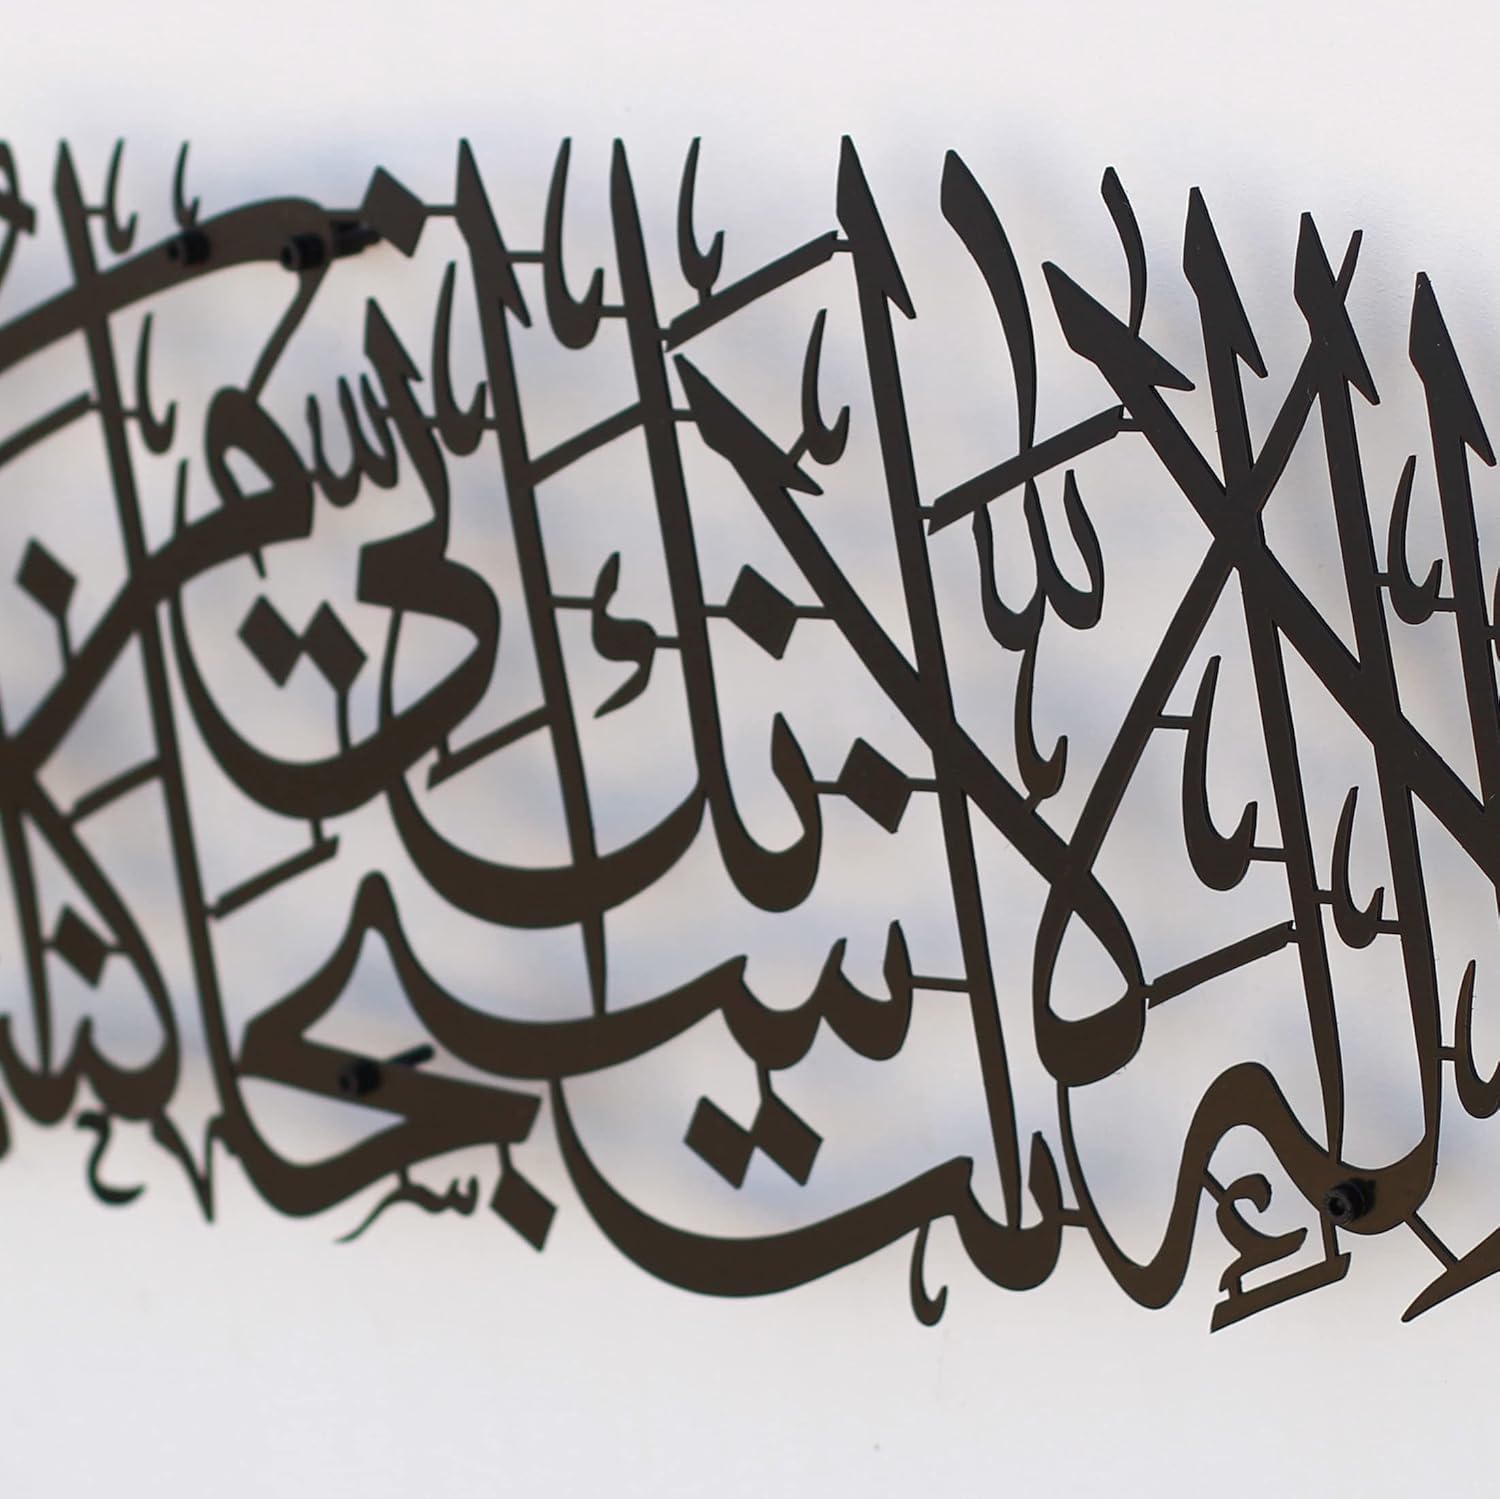 لا إله إلا أنت سبحانك إني كنت من